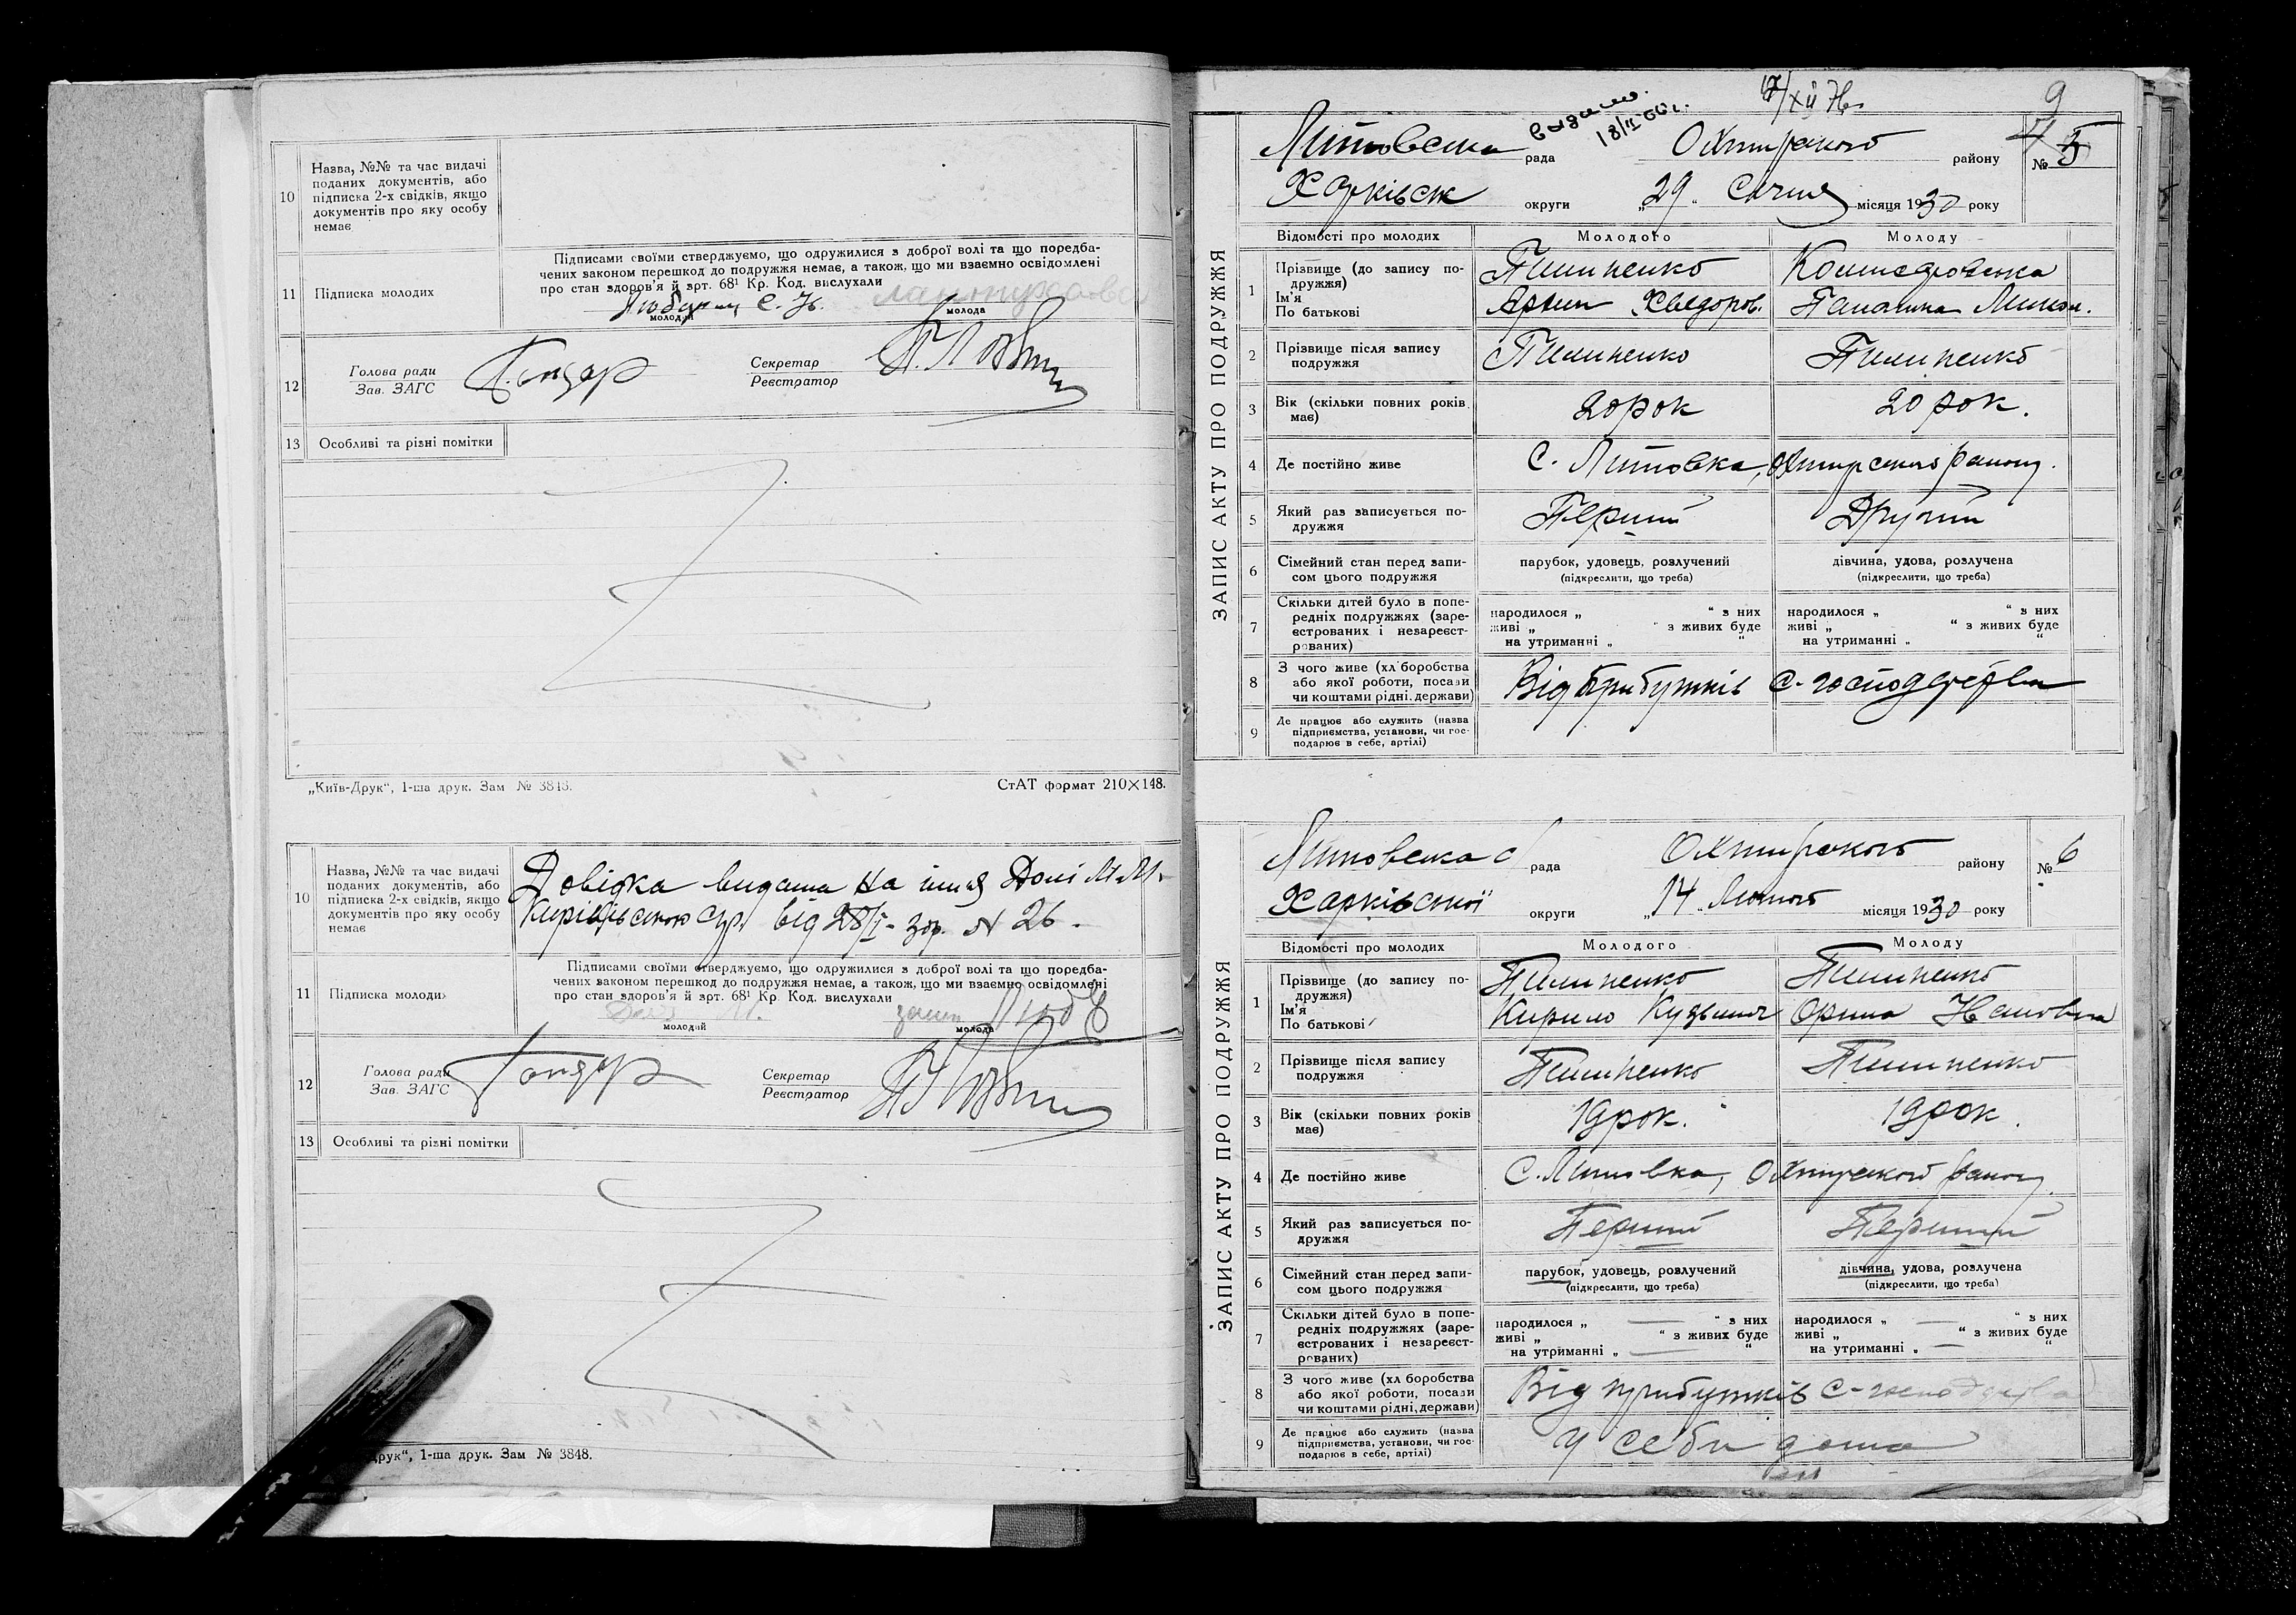 10
Назва, №№ та час видачі
поданих документів, або
підписка 2-х свідків, якщо
документів про яку особу
немає
11
Підписка молодих
Підписами своїми стверджуємо, що одружилися з доброї волі та що поредба-
чених законом перешкод до подружжя немає, а також, що ми взаємно освідомлені
про стан здоров'я й арт. 68¹ Кр. Код. вислухали
молодий
молода
12
Голова ради
Зав. ЗАГС
Гондар
Секретар
Реєстратор
13
Особливі та різні помітки
„Київ-Друк“, 1-ша друк. Зам № 3848.
СтАТ формат 210×148.
10
Назва, №№ та час видачі
поданих документів, або
підписка 2-х свідків, якщо
документів про яку особу
немає
Довідка видана на имя Долі М.М.
від 28/I-30р. N 26.
11
Підписка молодих
Підписами своїми стверджуємо, що одружилися з доброї волі та що поредба-
чених законом перешкод до подружжя немає, а також, що ми взаємно освідомлені
про стан здоров'я й арт. 68¹ Кр. Код. вислухали
молодий
молода
12
Голова ради
Зав. ЗАГС
Гондар
Секретар
Реєстратор
13
Особливі та різні помітки
друк“, 1-ша друк. Зам № 3848.
9
ЗАПИС АКТУ ПРО ПОДРУЖЖЯ
Литовська рада Охтирского району № 5
Харківськ округи „29“ Січня місяця 1930 року
Відомості про молодих
Молодого
Молоду
1
Прізвище (до запису по-
дружжя)
Ім'я
По батькові
Пилипенко
Хведоров.
2
Прізвище після запису
подружжя
Пилипенко
Пилипенко
3
Вік (скільки повних років
має)
20 рок
20 рок.
4
Де постійно живе
С. Литовка, Охтирского району.
5
Який раз записується по-
дружжя
Перший
Другий
6
Сімейний стан перед запи-
сом цього подружжя
парубок, удовець, розлучений
(підкреслити, що треба)
дівчина, удова, розлучена
(підкреслити, що треба)
7
Скільки дітей було в попе-
редніх подружжях (заре-
єстрованих і незареєст-
рованих)
народилося „ “ з них
живі „ “ з живих буде
на утриманні „ “
народилося „ “ з них
живі „ “ з живих буде
на утриманні „ “
8
З чого живе (хліборобства
або якої роботи, посади
чи коштами рідні, держави)
Від прибутків с-господарства
9
Де працює або служить (назва
підприємства, установи, чи гос-
подарює в себе, артілі)
ЗАПИС АКТУ ПРО ПОДРУЖЖЯ
Литовська с рада Охтирского району № 6
Харківської округи „14“ Лютого місяця 1930 року
Відомості про молодих
Молодого
Молоду
1
Прізвище (до запису по-
дружжя)
Ім'я
По батькові
Пилипенко
Кирило Кузьмич
Пилипенко
Орина Ивановна
2
Прізвище після запису
подружжя
Пилипенко
Пилипенко
3
Вік (скільки повних років
має)
19 рок.
19 рок.
4
Де постійно живе
С. Литовка, Охтирского району.
5
Який раз записується по-
дружжя
Перший
Перший
6
Сімейний стан перед запи-
сом цього подружжя
парубок, удовець, розлучений
(підкреслити, що треба)
дівчина, удова, розлучена
(підкреслити, що треба)
7
Скільки дітей було в попе-
редніх подружжях (заре-
єстрованих і незареєст-
рованих)
народилося „ — “ з них
живі „ “ з живих буде
на утриманні „ — “
народилося „ — “ з них
живі „ “ з живих буде
на утриманні „ — “
8
З чого живе (хліборобства
або якої роботи, посади
чи коштами рідні, держави)
Від прибутків с-господарства
9
Де працює або служить (назва
підприємства, установи, чи гос-
подарює в себе, артілі)
У себи дома